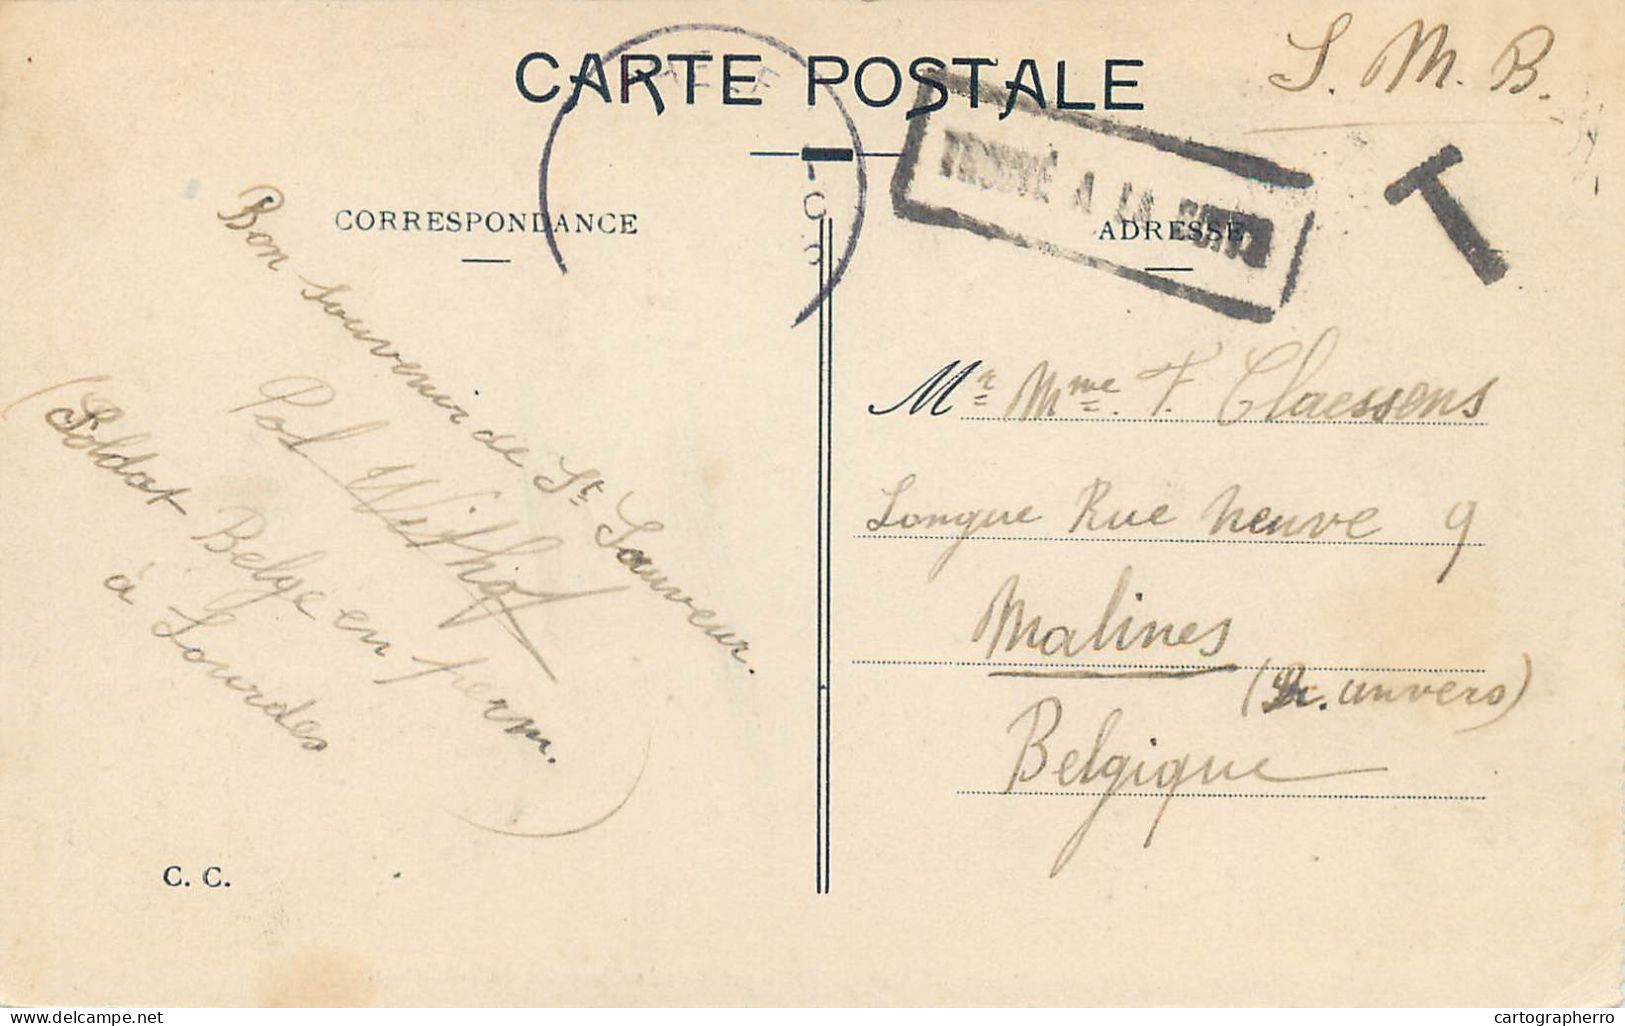 CARTE POSTALE
S. M. B.
TROUVÉ A LA BOITE
T
CORRESPONDANCE
ADRESSE
Bon souvenir de St Sauveur.
Pol
(Soldat Belge en perm.
à Lourdes
Mr Mme. F. Claessens
Longue Rue Neuve 9
Malines
(Pr. Anvers)
Belgique
C. C.
www.delcampe.net
cartographerro